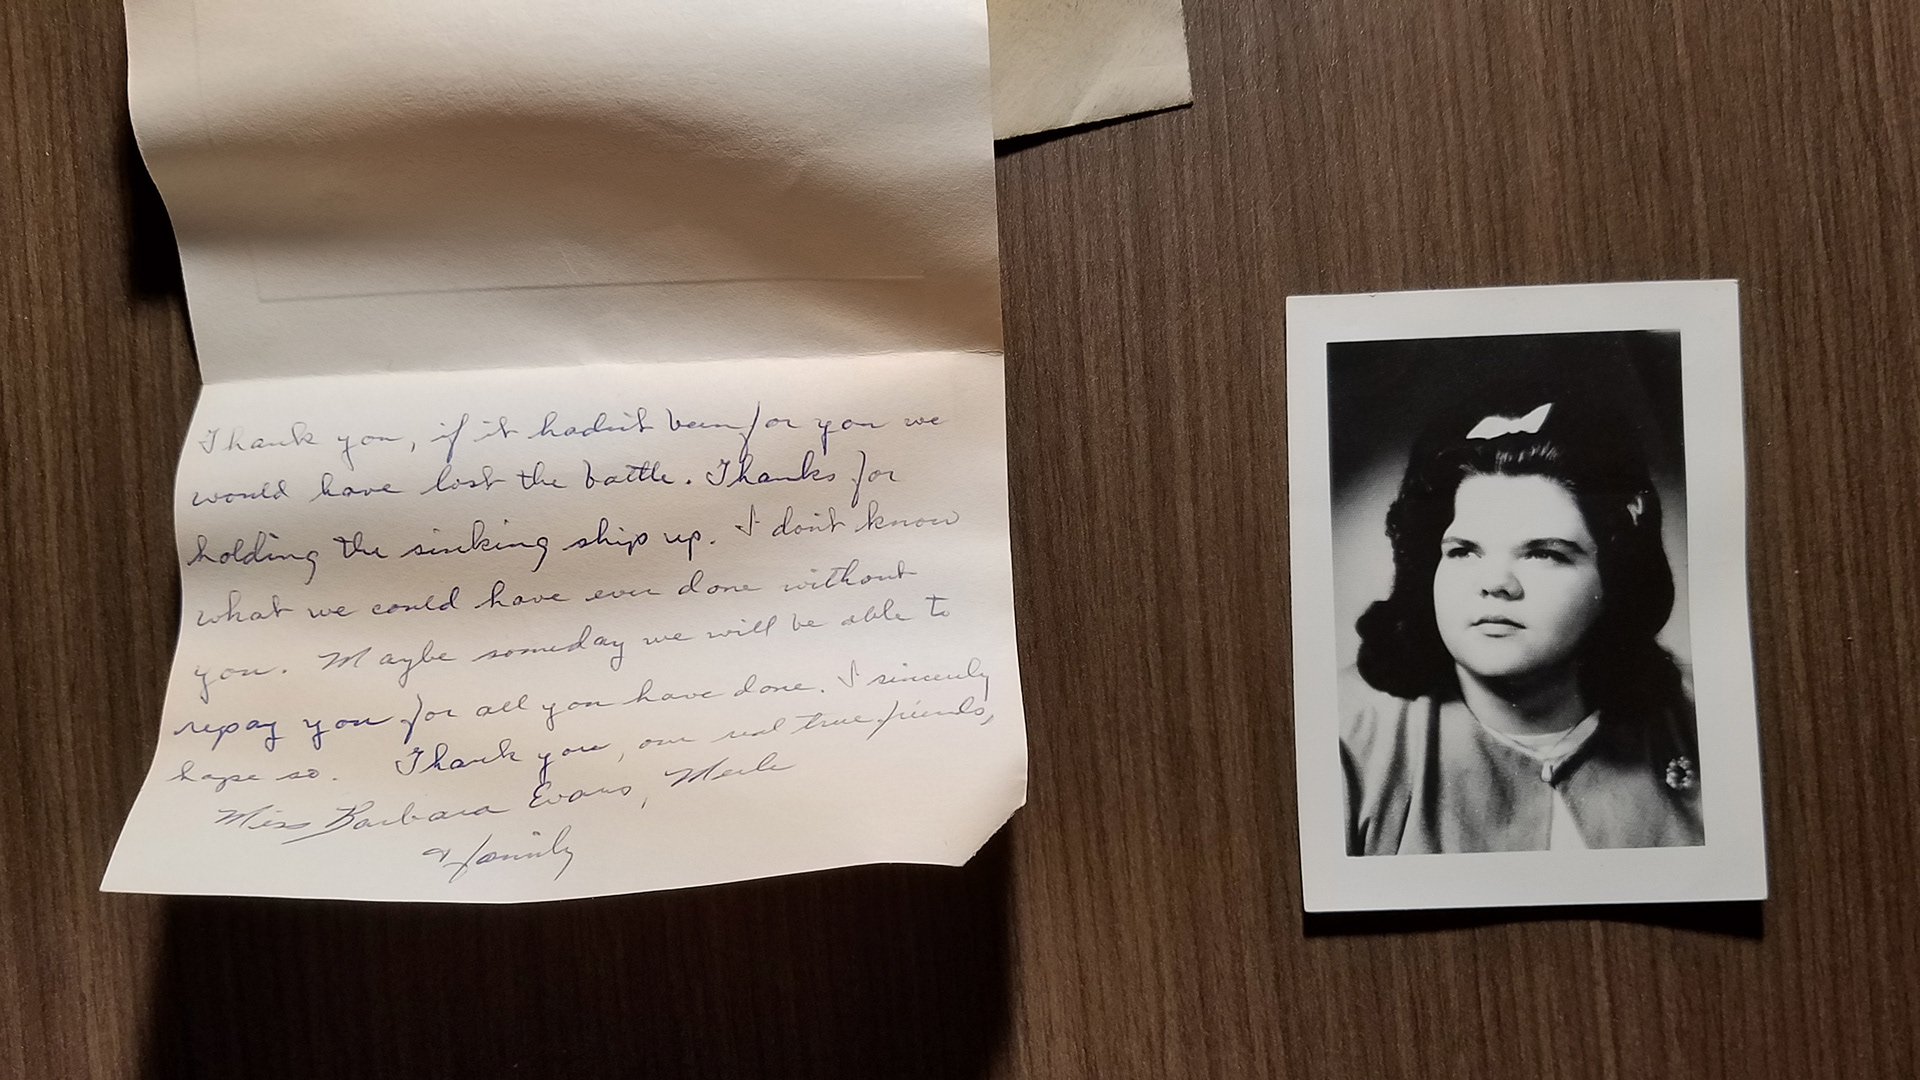 Thank you, if it hadn't been for you we
would have lost the battle. Thanks for
holding the sinking ship up. I don't know
what we could have ever done without
you. Maybe someday we will be able to
repay you for all you have done. I sincerely
hope so. Thank you, our real true friends,
Miss Barbara Evans, Merle
& family